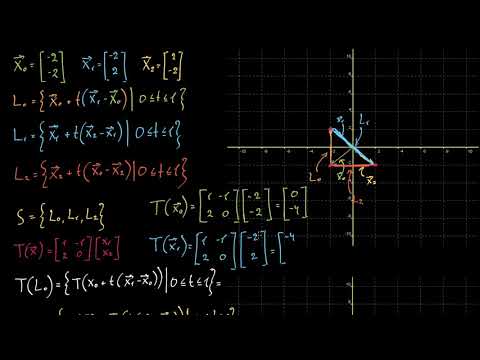 x⃗₀ = [-2 -2] x⃗₁ = [-2 2] x⃗₂ = [2 -2]
L₀ = {x⃗₀ + t(x⃗₁ - x⃗₀) | 0 ≤ t ≤ 1}
L₁ = {x⃗₁ + t(x⃗₂ - x⃗₁) | 0 ≤ t ≤ 1}
L₂ = {x⃗₂ + t(x⃗₀ - x⃗₂) | 0 ≤ t ≤ 1}
S = {L₀, L₁, L₂}
T(x⃗₀) = [1 -1 2 0] [-2 -2] = [0 -4]
T(x⃗) = [1 -1 2 0]
T(x⃗₁) = [1 -1 2 0] [-2 2] = [-4
T(L₀) = {T(x₀ + t(x⃗₁ - x⃗₀)) | 0 ≤ t ≤ 1} =
x₁
L₁
L₀
x₀
x₂